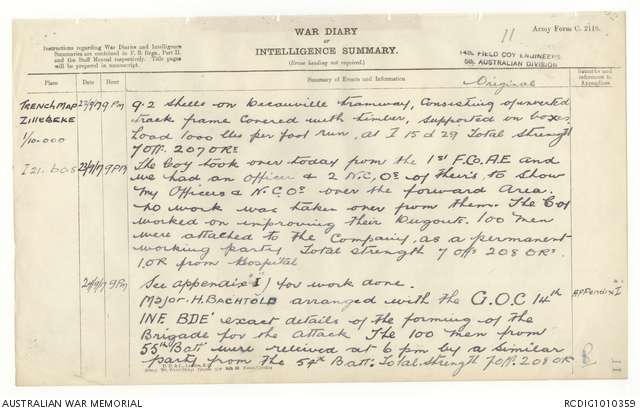 WAR DIARY
or
INTELLIGENCE SUMMARY.
(Erase heading not required.)
Army Form C. 2118.
11
14th FIELD COY ENGINEERS
5th AUSTRALIAN DIVISION
Instructions regarding War Diaries and Intelligence
Summaries are contained in F. S. Regs., Part II.
and the Staff Manual respectively. Title pages
will be prepared in manuscript.
Original
Place Date Hour Summary of Events and Information Remarks and references to Appendices
Trench Map 9 Pm 9.2 Shells on Decauville tramway, Consisting of inverted
Zillebeke track frame Covered with timber, supported on boxes
1/10.000 Load 1000 lbs per foot run, at I 15 d 29 Total Strength
7 Off. 207 ORs
I 21. b 0.8 22/9/17 9 Pm The Coy took over today from the 1st F.Co. A.E and
we had an officer & 2 N.C.Os of theirs to show
my Officers & N.C.Os over the forward Area.
No work was taken over from them. The Coy
worked on improving their Dugouts. 100 men
were attached to the Company, as a permanent
working party Total Strength 7 offs 208 ORs.
1.OR from Hospital
9 Pm See appendix "I" for work done. Appendix I
Major H. Bachtold arranged with the G.O.C 14th
INF BDE exact details of the forming of the
Brigade for the attack The 100 men from
55th Batt were relieved at 6 pm by a similar
party from the 54th Batt. Total Strength 7 Off. 208 OR
11
AUSTRALIAN WAR MEMORIAL
RCDIG1010359